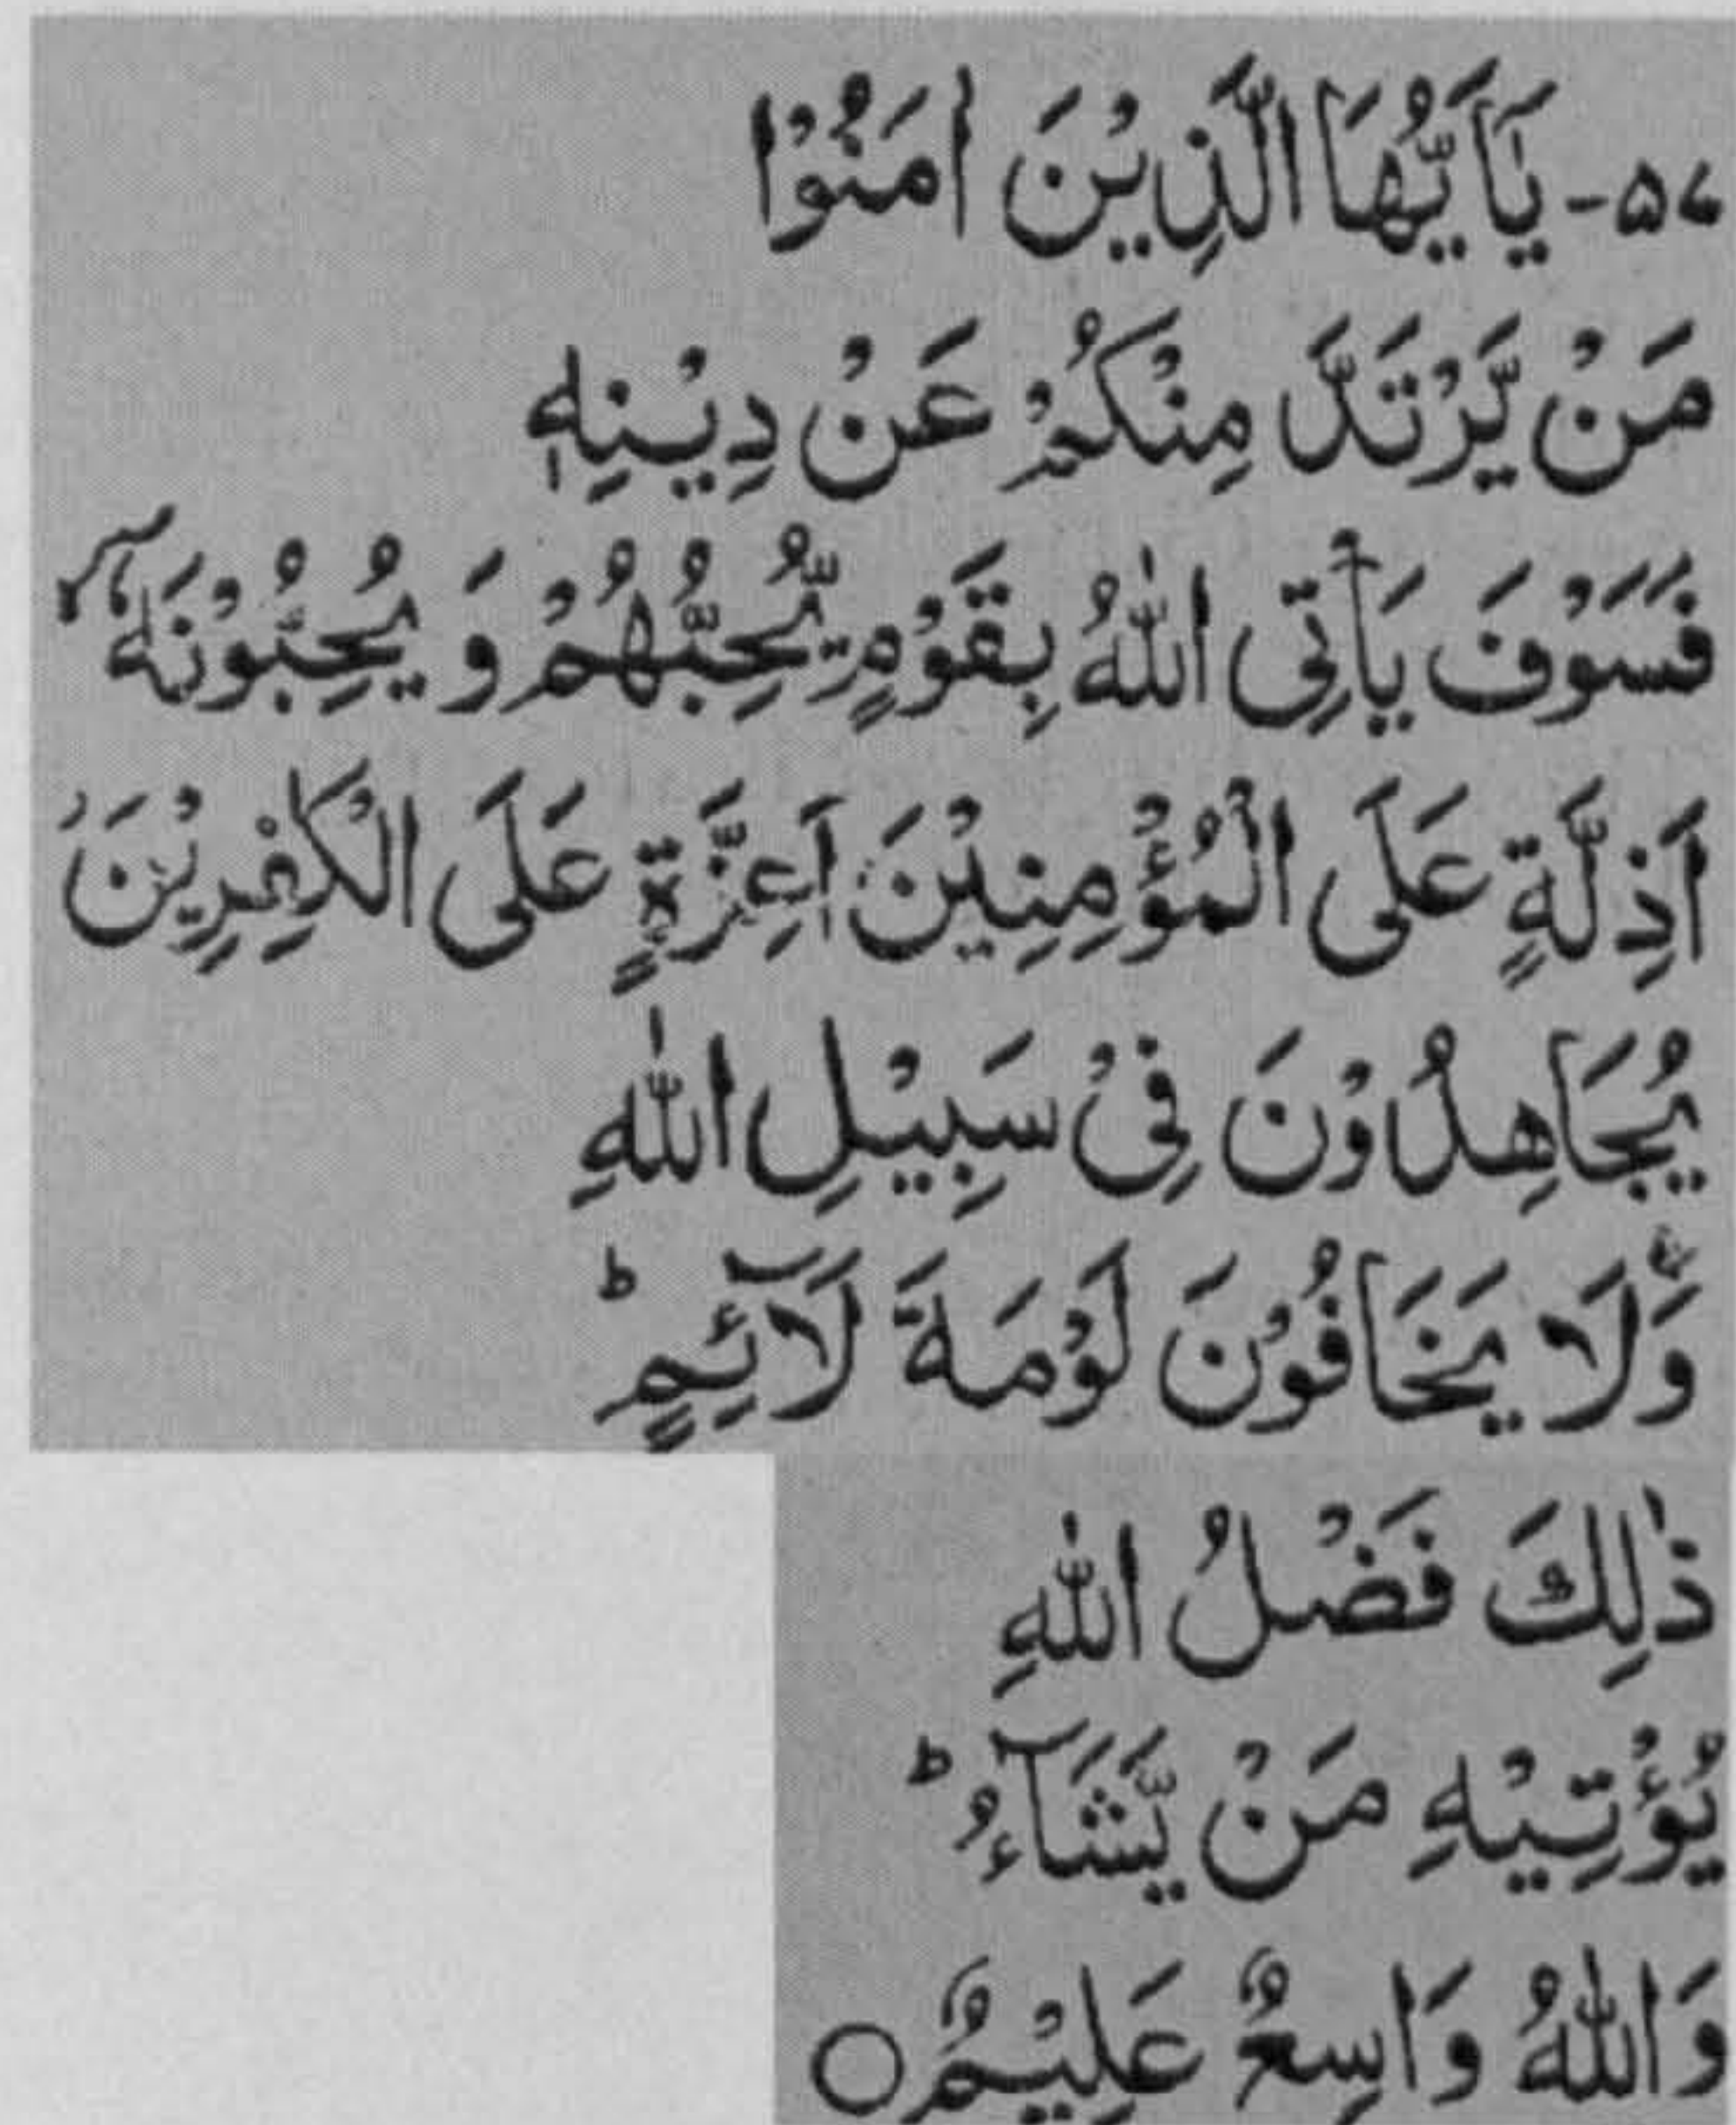 ۵۴- يٰۤاَيُّهَا الَّذِيْنَ اٰمَنُوْا
مَنْ يَّرْتَدَّ مِنْكُمْ عَنْ دِيْنِهٖ
فَسَوْفَ يَاْتِى اللّٰهُ بِقَوْمٍ يُّحِبُّهُمْ وَ يُحِبُّوْنَهٗۤ ۙ
اَذِلَّةٍ عَلَى الْمُؤْمِنِيْنَ اَعِزَّةٍ عَلَى الْكٰفِرِيْنَ ؗ
يُجَاهِدُوْنَ فِىْ سَبِيْلِ اللّٰهِ
وَلَا يَخَافُوْنَ لَوْمَةَ لَآئِمٍ ؕ
ذٰلِكَ فَضْلُ اللّٰهِ
يُؤْتِيْهِ مَنْ يَّشَآءُ ؕ
وَاللّٰهُ وَاسِعٌ عَلِيْمٌ ○